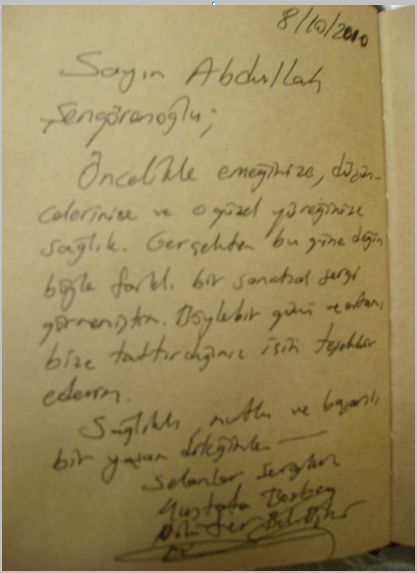 8/10/2010
Sayın Abdullah
Şengörenoğlu;
Öncelikle emeğinize, düşün-
celerinize ve o güzel yüreğinize
sağlık. Gerçekten bu güne değin
böyle farklı bir sanatsal sergi
görmemiştim. Böyle bir günü ve ortamı
bize tattırdığınız için teşekkür
ederim.
Sağlıklı, mutlu ve başarılı
bir yaşam dileğimle
Selamlar Saygılar
Mustafa Bozbey
Nilüfer Bld. Bşk.